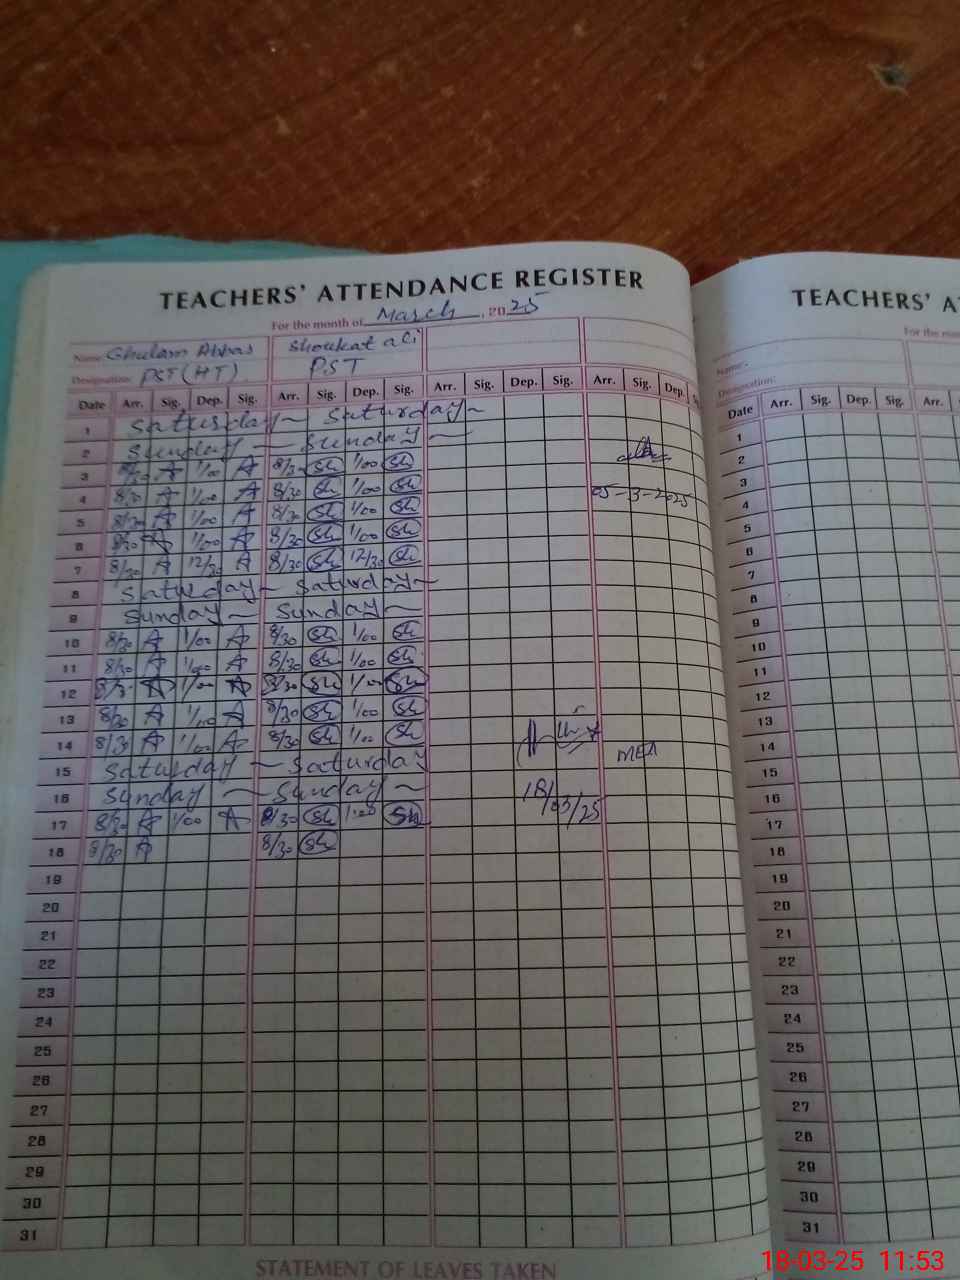 TEACHERS' ATTENDANCE REGISTER
For the month of March, 2025
Name: Ghulam Abbas Shoukat ali
Designation: PST (HT) PST
Date Arr. Sig. Dep. Sig. Arr. Sig. Dep. Sig. Arr. Sig. Dep. Sig. Arr. Sig. Dep. S
1 Saturday — Saturday —
2 Sunday — Sunday —
3 8/30 A 1/00 A 8/30 Sh 1/00 Sh
4 8/30 A 1/00 A 8/30 Sh 1/00 Sh 05-3-2025
5 8/30 A 1/00 A 8/30 Sh 1/00 Sh
6 8/30 A 1/00 A 8/30 Sh 1/00 Sh
7 8/30 A 12/30 A 8/30 Sh 12/30 Sh
8 Saturday — Saturday —
9 Sunday — Sunday —
10 8/30 A 1/00 A 8/30 Sh 1/00 Sh
11 8/30 A 1/00 A 8/30 Sh 1/00 Sh
12 8/30 A 1/00 A 8/30 Sh 1/00 Sh
13 8/30 A 1/00 A 8/30 Sh 1/00 Sh
14 8/30 A 1/00 A 8/30 Sh 1/00 Sh MEA
15 Saturday — Saturday
16 Sunday — Sunday — 18/03/25
17 8/30 A 1/00 A 8/30 Sh 1:00 Sh
18 8/30 A 8/30 Sh
19
20
21
22
23
24
25
26
27
28
29
30
31
STATEMENT OF LEAVES TAKEN
TEACHERS' A
For the mon
Name:
Designation:
Date Arr. Sig. Dep. Sig. Arr. S
1
2
3
4
5
6
7
8
9
10
11
12
13
14
15
16
17
18
19
20
21
22
23
24
25
26
27
28
29
30
31
18-03-25 11:53